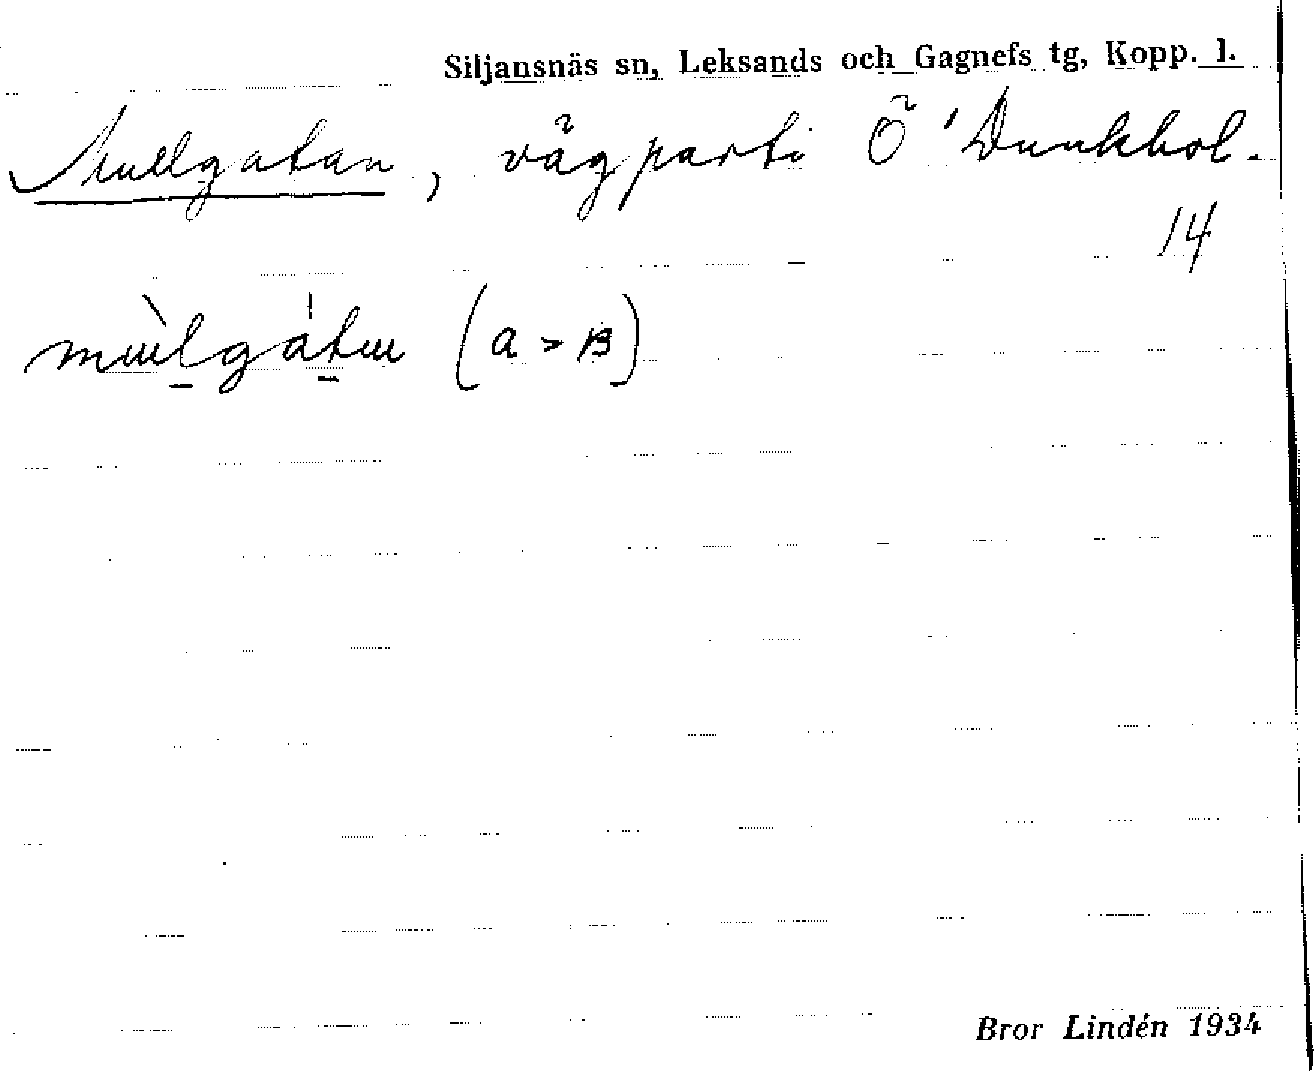 Siljansnäs sn, Leksands och Gagnefs tg, Kopp. l.
Mullgatan, vägparti Ö 'Dunkhol.
14
mùlgátɯ (a > ʙ)
Bror Lindén 1934